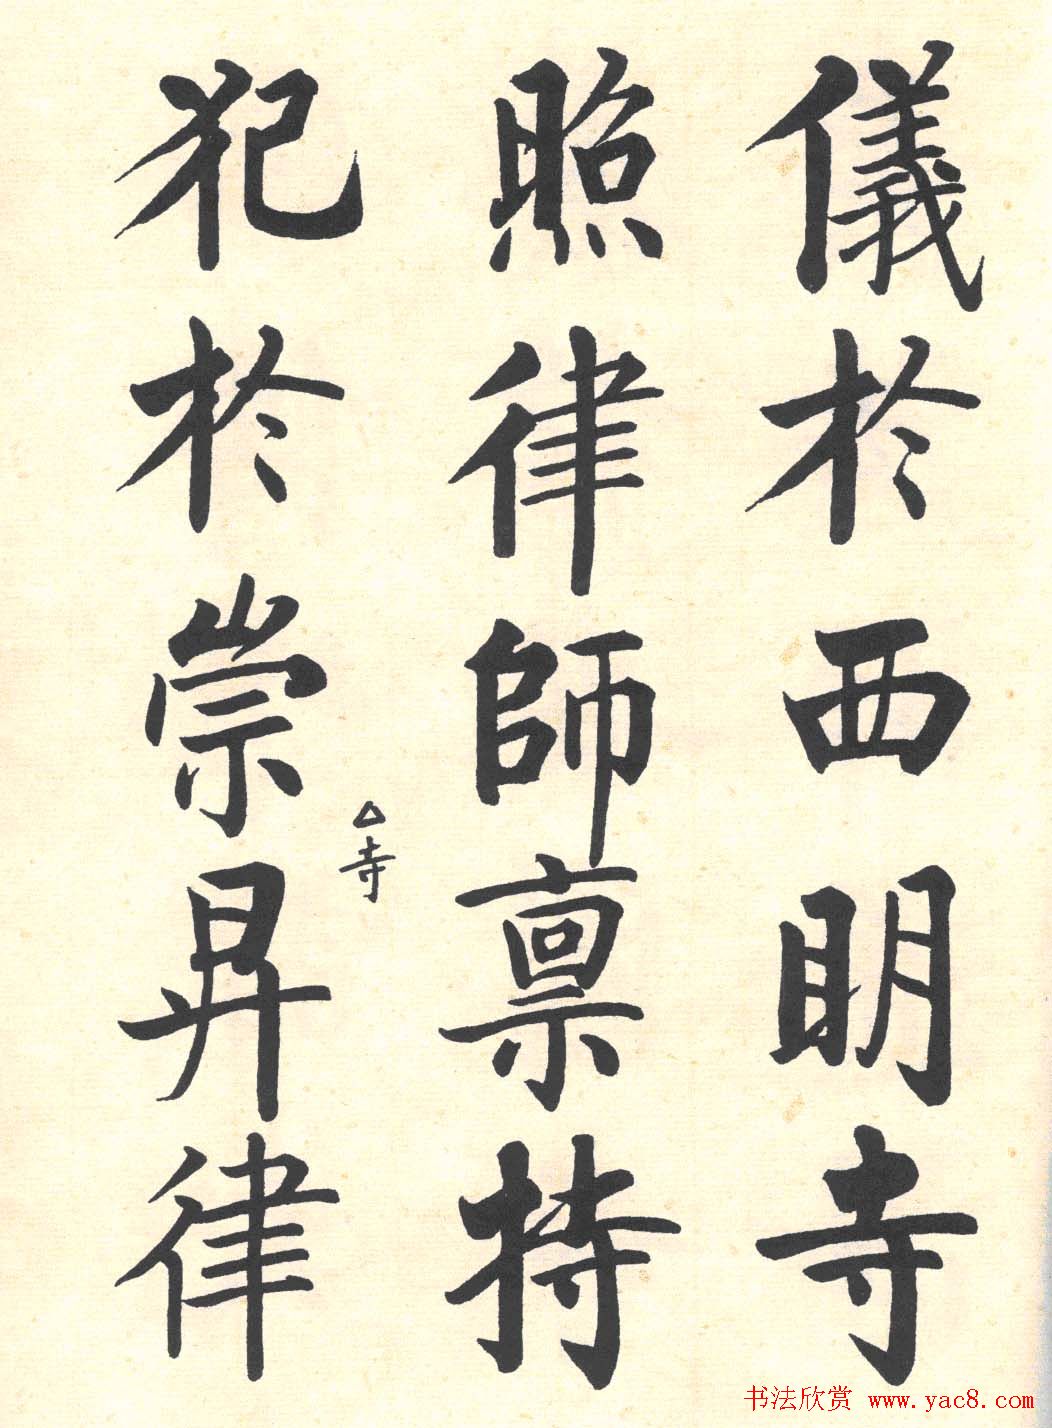 儀於西明寺
照律師禀持
犯於崇昇律
△寺
书法欣赏 www.yac8.com